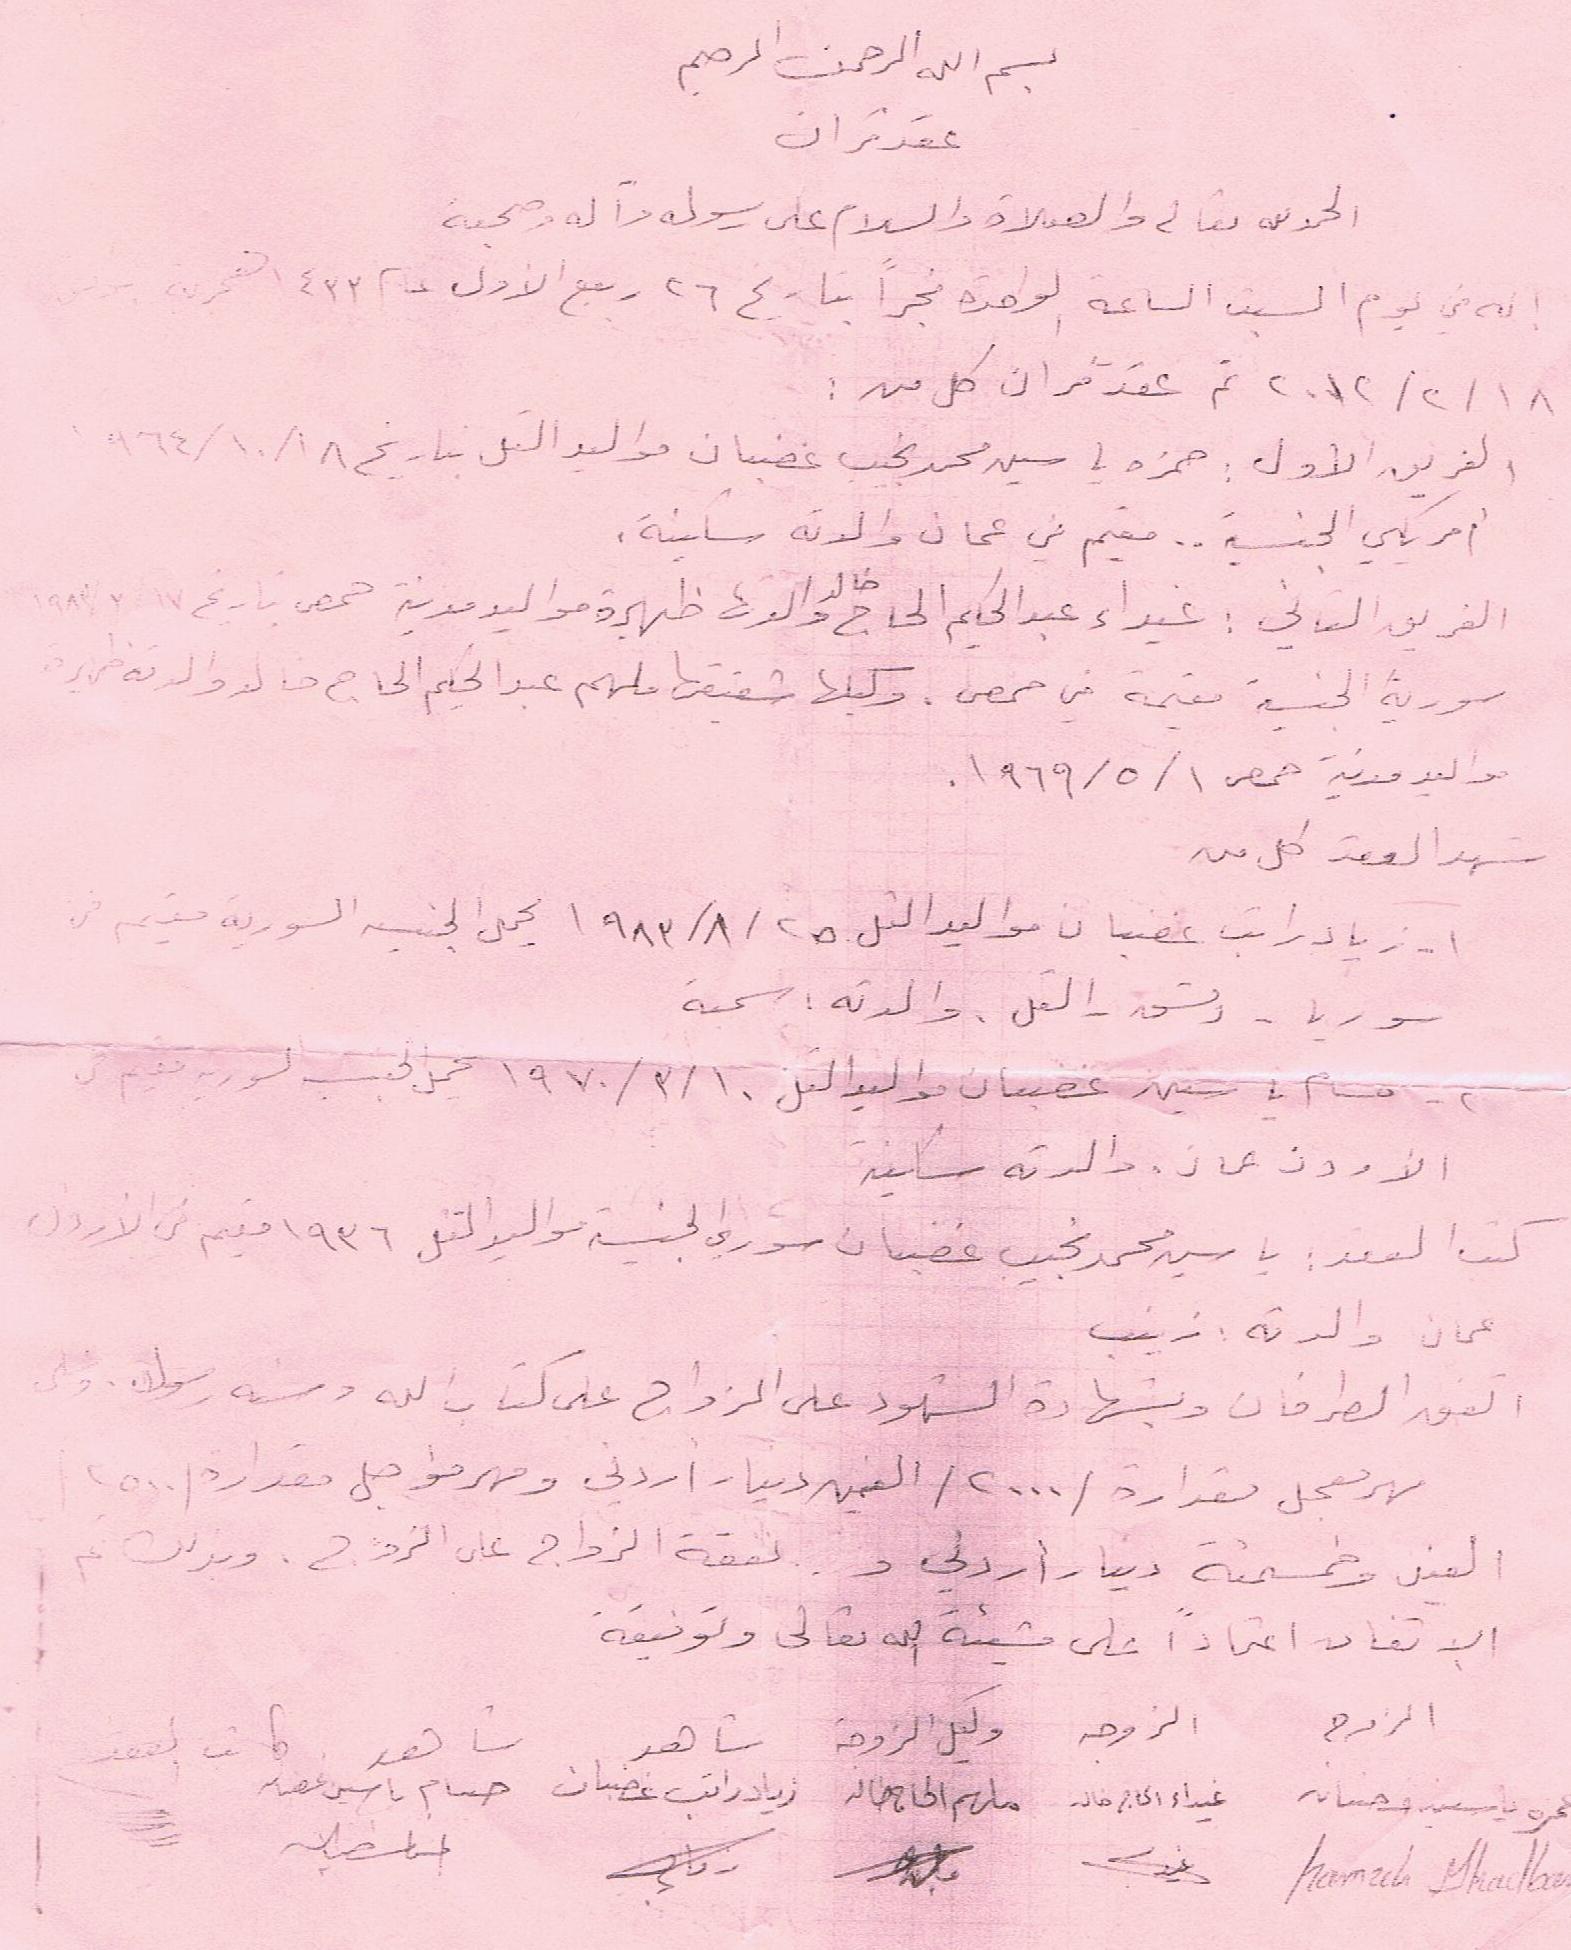 بسم الله الرحمن الرحيم
عقد قران
الحمد لله تعالى والصلاة والسلام على رسوله وآله وصحبه
إنه في يوم السبت الساعة الواحدة فجراً بتاريخ ٢٦ ربيع الأول عام ١٤٣٣ الهجرية
١٨ / ٢ / ٢٠١٢ تم عقد قران كل من :
الفريق الأول : حمزه ياسين محمد نجيب غضبان مواليد التل بتاريخ ١٨/١٠/١٩٦٤
أمريكي الجنسية .. مقيم في عمان والدته سكينة .
الفريق الثاني : غيداء عبد الحكيم الحاج خالد والدتها ظهيرة مواليد مدينة حمص بتاريخ ١٧
سورية الجنسية مقيمة في حمص . وكيلها شقيقها ملهم عبد الحكيم الحاج خالد والدته ظهيرة
مواليد مدينة حمص ١ / ٥ / ١٩٦٩ .
شهد العقد كل من
١ - زياد راتب غضبان مواليد التل ٢٥ / ٨ / ١٩٨٣ يحمل الجنسية السورية مقيم في
سوريا - دمشق - التل . والدته : سمية
٢ - حسام ياسين غضبان مواليد التل ١٠ / ٣ / ١٩٧٠ يحمل الجنسية السورية مقيم في
الأردن عمان . والدته سكينة
كتب العقد : ياسين محمد نجيب غضبان سوري الجنسية مواليد التل ١٩٣٦ مقيم في الأردن
عمان والدته : زينب
اتفق الطرفان وبشهادة الشهود على الزواج على كتاب الله وسنة رسوله . وعلى
مهر معجل مقداره / ٢٠٠٠ / الفين دينار أردني ومهر مؤجل مقداره / ٢٥٠٠ /
الفين وخمسمئة دينار أردني و نفقة الزواج على الزوج . وبذلك تم
الاتفاق اعتماداً على مشيئة الله تعالى وتوفيقه
الزوج الزوجه وكيل الزوجة شاهد شاهد كاتب العقد
حمزه ياسين غضبان غيداء الحاج خالد ملهم الحاج خالد زياد راتب غضبان حسام ياسين غضبان
hamzeh Ghadban